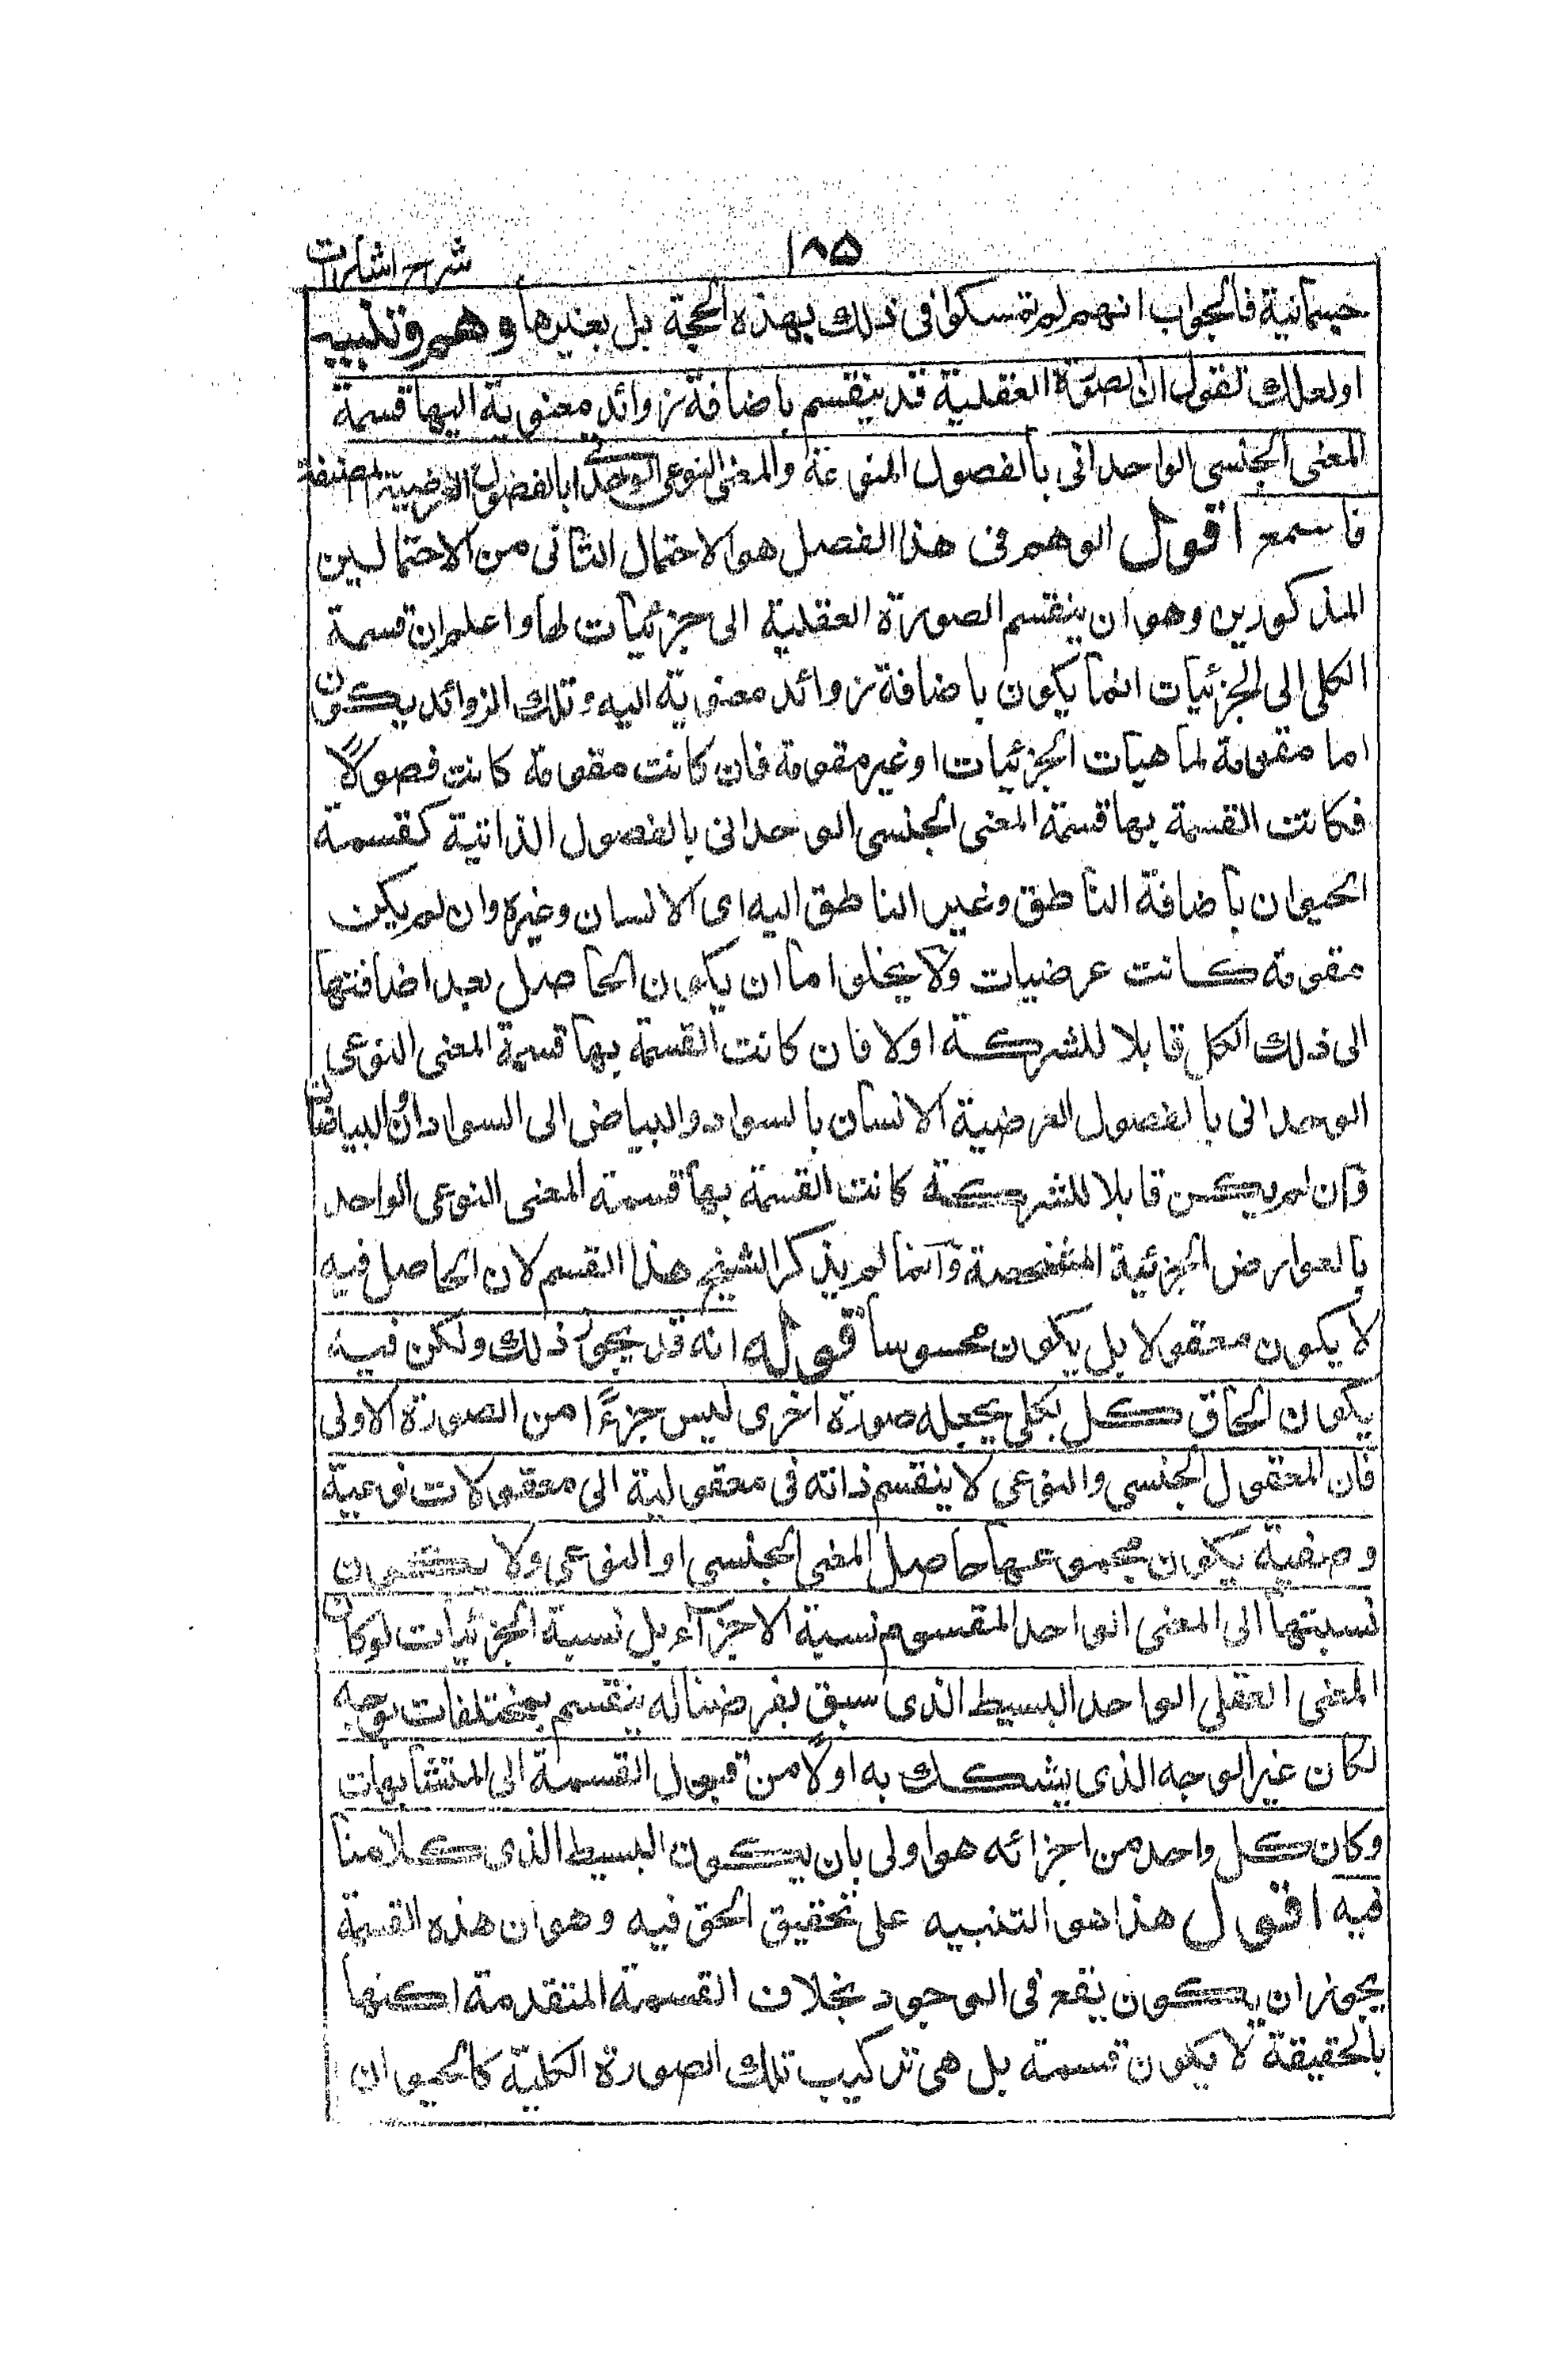 ١٨٥
شرح اشارات
جسمانية فالجواب انهم لم يتمسكوا فى ذلك بهذه الحجة بل بغيرها وهم وتنبيه
اولعلك تقول ان الصورة العقلية قد ينقسم باضافة زوائد معنوية اليها قسمة
المعنى الجنسى الواحدانى بالفصول المنوعة والمعنى النوعى بالفصول العرضية المصنفة
فاسمع اقول الوهم فى هذا الفصل هو الاحتمال الثانى من الاحتمالين
المذكورين وهو ان ينقسم الصورة العقلية الى جزئيات لها واعلم ان قسمة
الكلى الى الجزئيات انما يكون باضافة زوائد معنوية اليه وتلك الزوائد يكون
اما مقومة لماهيات الجزئيات او غير مقومة فان كانت مقومة كانت فصولاً
فكانت القسمة بها قسمة المعنى الجنسى الوحدانى بالفصول الذاتية كقسمة
الحيوان باضافة الناطق وغير الناطق اليه اى الانسان وغيره وان لم يكن
مقومة كانت عرضيات ولا يخلوا ما ان يكون الحاصل بعد اضافتها
الى ذلك الكل قابلا للشركة اولا فان كانت القسمة بها قسمة المعنى النوعى
الوحدانى بالفصول العرضية الانسان بالسواد والبياض الى السودان والبيضان
وان لم يكن قابلا للشركة كانت القسمة بها قسمة المعنى النوعى الواحد
بالعوارض الجزئية المشخصة وانما لم يذكر الشيخ هذا القسم لان الحاصل فيه
لا يكون معقولا بل يكون محسوسا قوله انه قد يجوز ذلك ولكن فيه
يكون الحاق كل بكلى يجعله صورة اخرى ليس جزءًا من الصورة الاولى
فان المعقول الجنسى والنوعى لا ينقسم ذاته فى معقولية الى معقولات نوعية
وصنفية يكون مجموعها حاصل المعنى الجنسى او النوعى ولا يكون
نسبتها الى المعنى الواحد المقسوم نسبة الاجزاء بل نسبة الجزئيات لو كان
المعنى العقلى الواحد البسيط الذى سبق بفرضنا له ينقسم بمختلفات بوجه
لكان غير الوجه الذى يشكك به اولاً من قبول القسمة الى المتشابهات
وكان كل واحد من اجزائه هو اولى بان يكون البسيط الذى كلامنا
فيه اقول هذا هو التنبيه على تحقيق الحق فيه وهو ان هذه القسمة
يجوز ان يكون يقع فى الوجود بخلاف القسمة المتقدمة لكنها
بالحقيقة لا يكون قسمة بل هى تركيب تلك الصورة الكلية كالحيوان